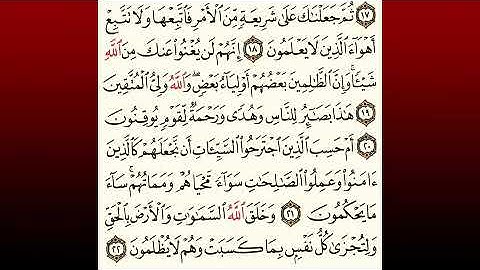 ١٧ ثُمَّ جَعَلْنَٰكَ عَلَىٰ شَرِيعَةٍ مِّنَ ٱلْأَمْرِ فَٱتَّبِعْهَا وَلَا نَتَّبِعْ
أَهْوَآءَ ٱلَّذِينَ لَا يَعْلَمُونَ ١٨ إِنَّهُمْ لَن يُغْنُوا۟ عَنكَ مِنَ ٱللَّهِ
شَيْـًٔا وَإِنَّ ٱلظَّٰلِمِينَ بَعْضُهُمْ أَوْلِيَآءُ بَعْضٍ وَٱللَّهُ وَلِىُّ ٱلْمُتَّقِينَ
١٩ هَٰذَا بَصَٰٓئِرُ لِلنَّاسِ وَهُدًى وَرَحْمَةٌ لِّقَوْمٍ يُوقِنُونَ
٢٠ أَمْ حَسِبَ ٱلَّذِينَ ٱجْتَرَحُوا۟ ٱلسَّيِّـَٔاتِ أَن نَّجْعَلَهُمْ كَٱلَّذِينَ
ءَامَنُوا۟ وَعَمِلُوا۟ ٱلصَّٰلِحَٰتِ سَوَآءً مَّحْيَاهُمْ وَمَمَاتُهُمْ سَآءَ
مَا يَحْكُمُونَ ٢١ وَخَلَقَ ٱللَّهُ ٱلسَّمَٰوَٰتِ وَٱلْأَرْضَ بِٱلْحَقِّ
وَلِتُجْزَىٰ كُلُّ نَفْسٍۭ بِمَا كَسَبَتْ وَهُمْ لَا يُظْلَمُونَ ٢٢